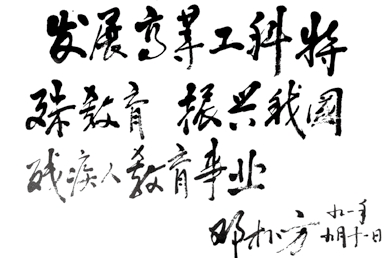 发展高等工科特
殊教育 振兴我国
残疾人教育事业
邓朴方 九一年
九月十一日